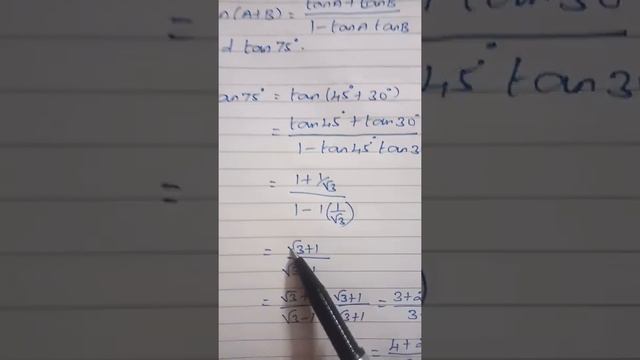 n(A+B) = tanA + tanB / 1 - tanA tanB
d tan 75°.
an 75° = tan (45° + 30°)
= tan 45° + tan 30° / 1 - tan 45° tan 3
= 1 + 1/√3 / 1 - 1(1/√3)
= √3+1 /
= √3 √3+1 / √3-1 √3+1 = 3+ / 3
= 4+